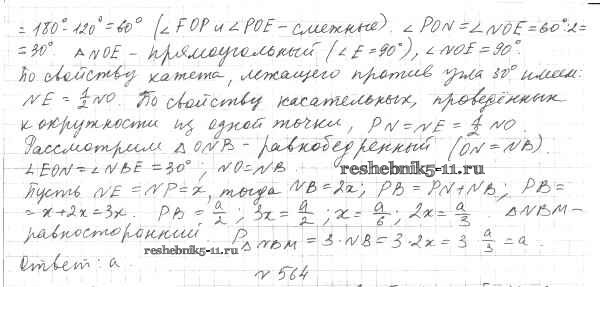 = 180° - 120° = 60° (∠FOP и ∠POE - смежные). ∠PON = ∠NOE = 60°:2 =
= 30°. △NOE - прямоугольный (∠E = 90°), ∠NOE = 90°.
По свойству катета, лежащего против угла 30° имеем:
NE = 1/2 NO. По свойству касательных, проведённых
к окружности из одной точки, PN = NE = 1/2 NO.
Рассмотрим △ONB - равнобедренный (ON = NB).
∠EON = ∠NBE = 30°; NO = NB.
reshebnik5-11.ru
Пусть NE = NP = x, тогда NB = 2x; PB = PN + NB; PB =
= x + 2x = 3x. PB = a/2; 3x = a/2; x = a/6; 2x = a/3. △NBM -
равносторонний P△NBM = 3·NB = 3·2x = 3 a/3 = a.
reshebnik5-11.ru
Ответ: a.
№ 564